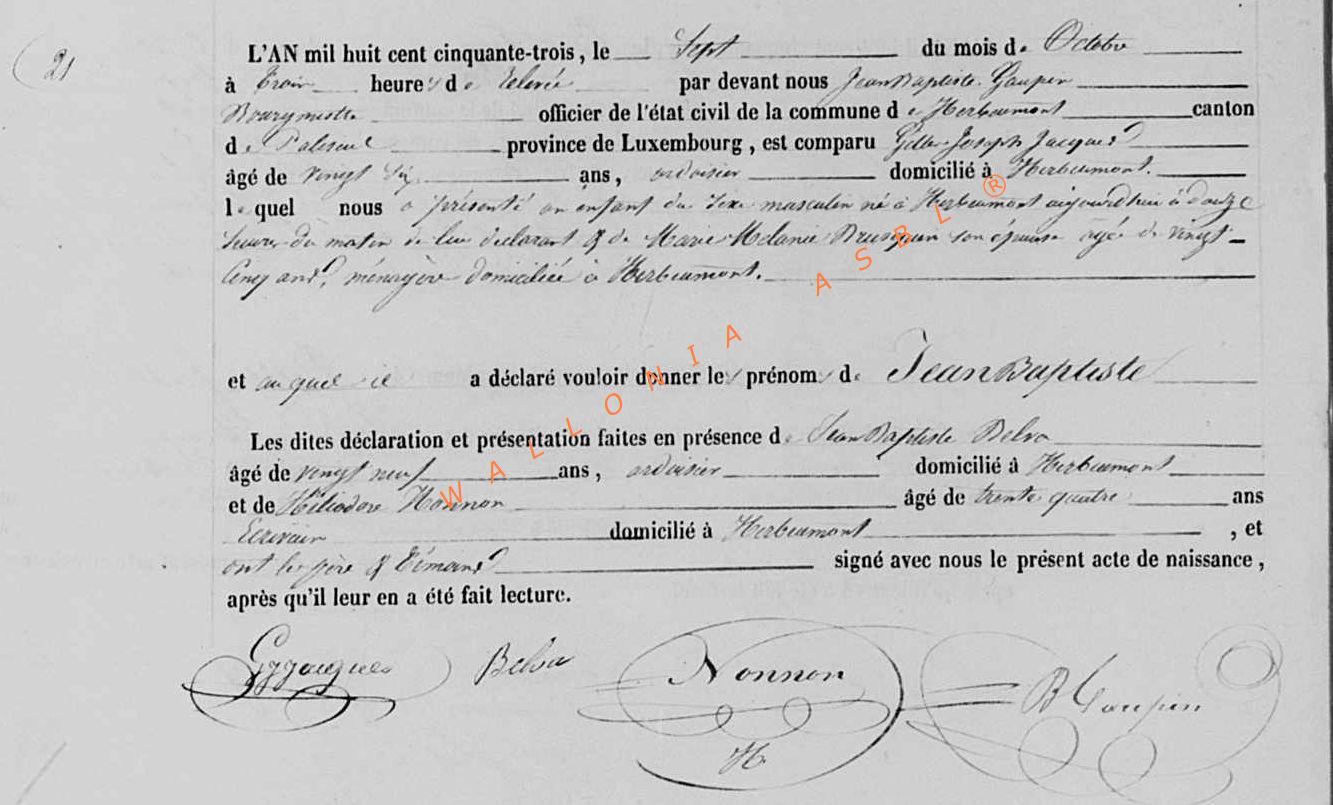 21
L'AN mil huit cent cinquante-trois, le Sept du mois de Octobre
à trois heures de relevée par devant nous Jean Baptiste Goupin
Bourgmestre officier de l'état civil de la commune de Herbeumont canton
de Paliseul province de Luxembourg, est comparu Gille Joseph Jacques
âgé de vingt six ans, ardoisier domicilié à Herbeumont.
lequel nous a présenté un enfant du sexe masculin né à Herbeumont aujourd'hui à douze
heures du matin de lui déclarant & de Marie Mélanie son épouse agée de vingt-
cinq ans, ménagère domiciliée à Herbeumont.
et auquel il a déclaré vouloir donner les prénoms de Jean Baptiste
Les dites déclaration et présentation faites en présence de Jean Baptiste Belva
âgé de vingt neuf ans, ardoisier domicilié à Herbeumont
et de Héliodore Nonnon âgé de trente quatre ans
Ecrivain domicilié à Herbeumont, et
ont les père & témoins signé avec nous le présent acte de naissance,
après qu'il leur en a été fait lecture.
GJJacques Belva Nonnon JB Goupin
H
WALLONIA ASBL ®